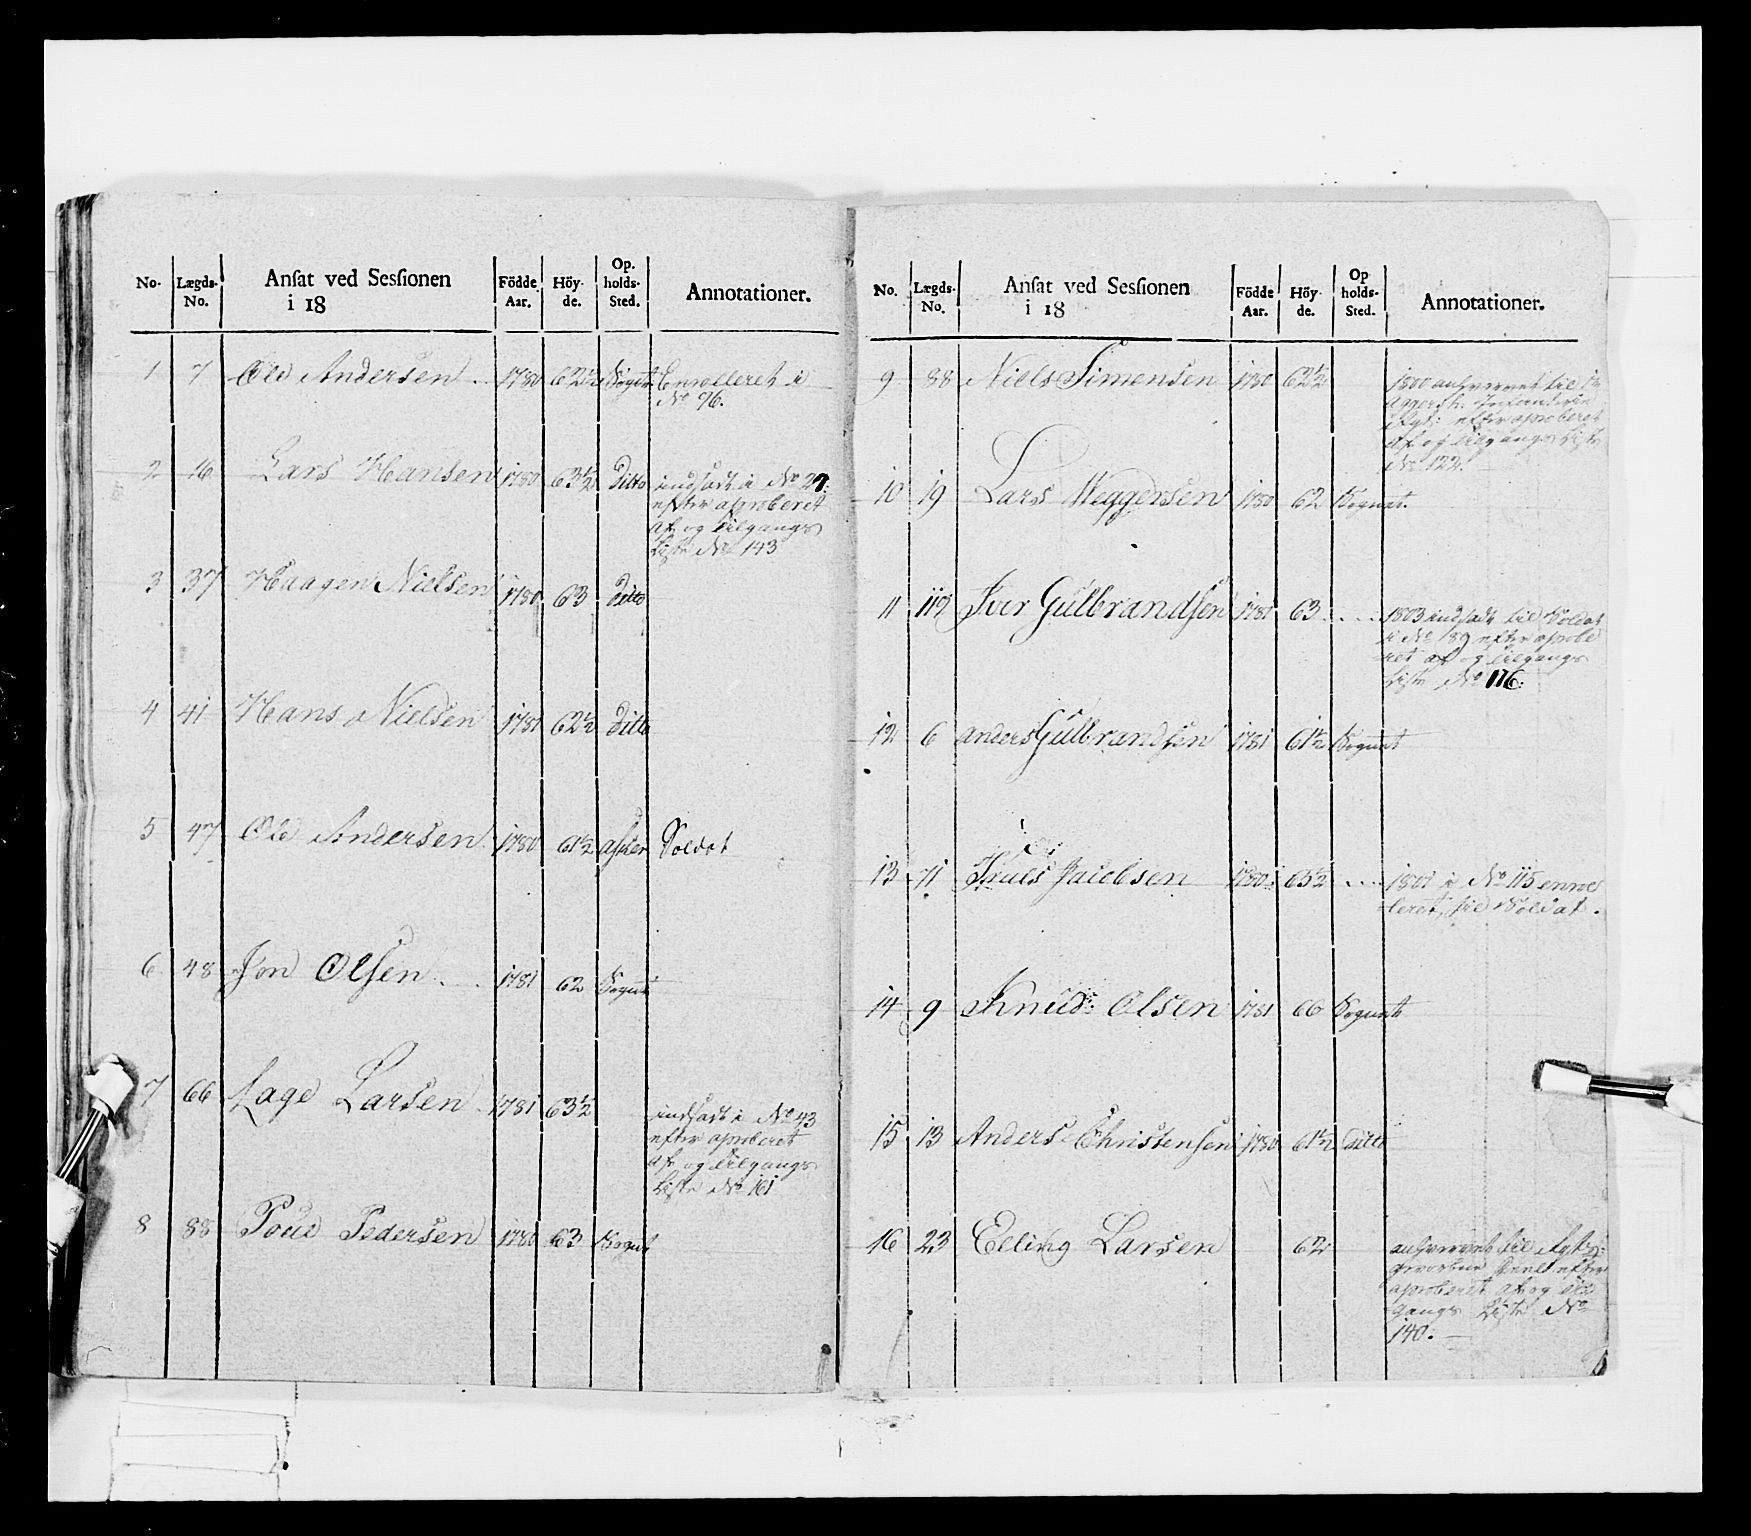 No. Lægds- No. Ansat ved Sessionen i 18 Födde Aar. Höy- de. Op- holds- Sted. Annotationer.
1 7 Ole Andersen 1780 62½ Sognet Enrolleret i
No 96.
2 16 Lars Hansen 1780 63½ Ditto indsadt i No 27.
efter aproberet
Af og Tilgangs
Liste No 143
3 37 Haagen Nielsen 1780 63 Ditto
4 41 Hans Nielsen 1781 62½ Ditto
5 47 Ole Andersen 1780 61½ Soldat
6 48 Jon Olsen 1781 62 Sognet
7 66 Lage Larsen 1781 63½ indsadt i No 43
efter aproberet
Af og Tilgangs
Liste No 161
8 88 Poul Pedersen 1780 63 Sognet
No. Lægds- No. Ansat ved Sessionen i 18 Födde Aar. Höy- de. Op holds- Sted. Annotationer.
9 88 Niels Simensen 1780 62½ 1800 til
Aggersh. Infanterie
efter aproberet
Af og Tilgangs Liste
No 122.
10 19 Lars Weggersen 1780 62 Sognet.
11 112 Iver Gulbrandsen 1781 63 1803 indsadt til Soldat
i No 189 efter aprobe
ret af og Tilgangs
Liste No 176.
12 6 Anders Gulbrandsen 1781 61½ Sognet
13 71 Truls Jacobsen 1780 63½ 1801 i No 115 enrol
leret til Soldat.
14 9 Knud Olsen 1781 66 Sognet
15 13 Anders Christensen 1780 61½ Ditto
16 23 Elling Larsen 62 til
efter
aproberet Af og Til
gangs Liste No
140.